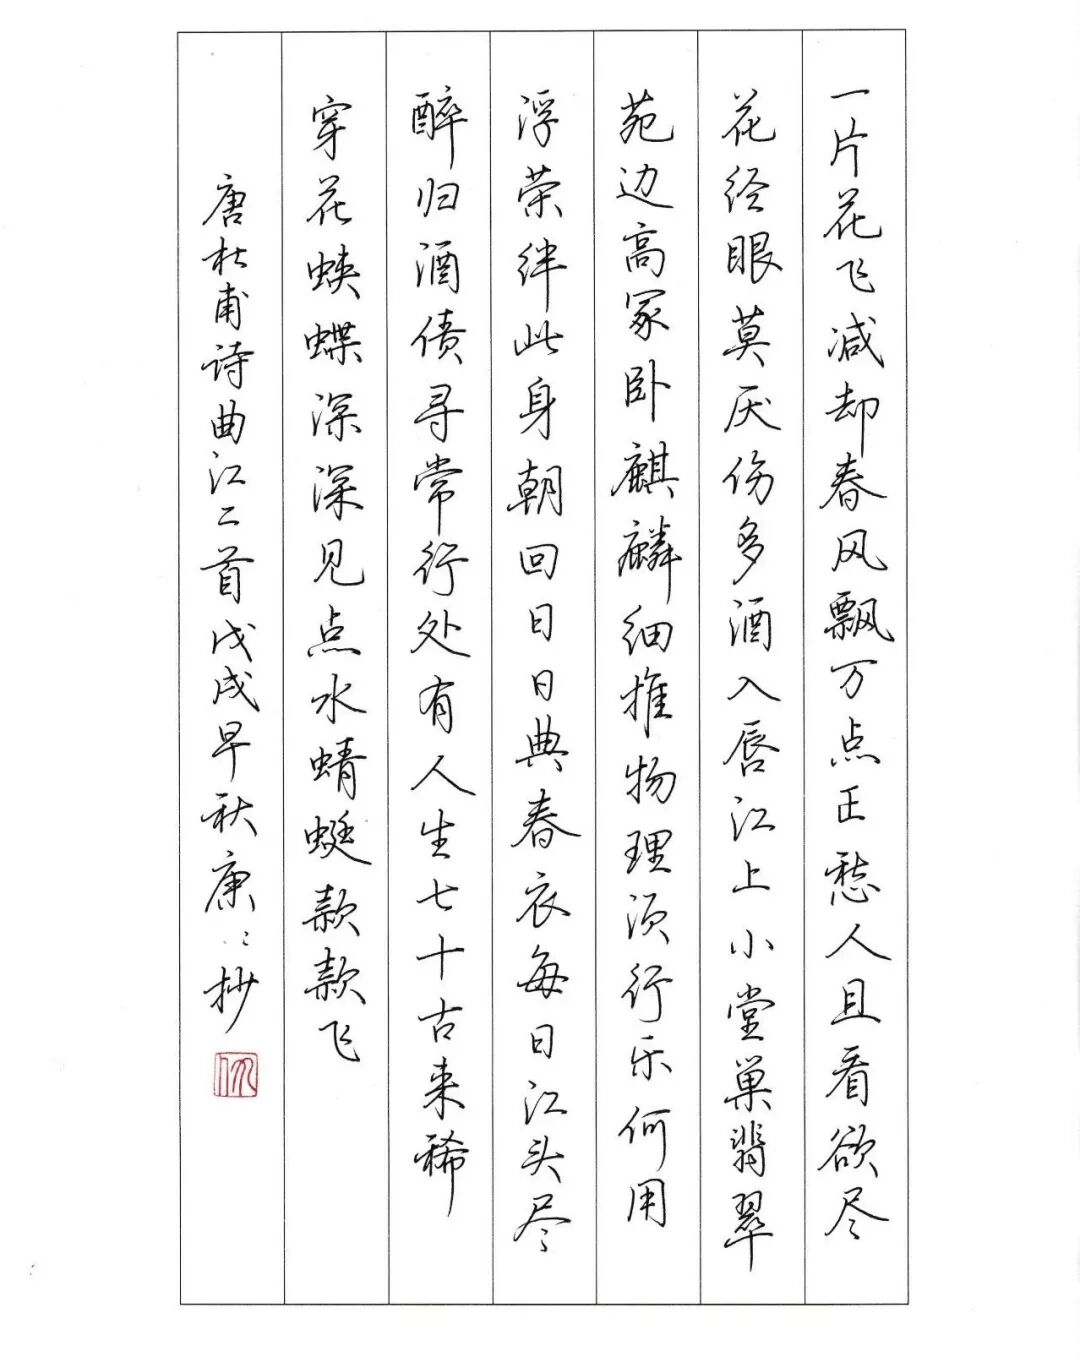 一片花飞减却春风飘万点正愁人且看欲尽
花经眼莫厌伤多酒入唇江上小堂巢翡翠
苑边高冢卧麒麟细推物理须行乐何用
浮荣绊此身朝回日日典春衣每日江头尽
醉归酒债寻常行处有人生七十古来稀
穿花蛱蝶深深见点水蜻蜓款款飞
唐杜甫诗曲江二首戊戌早秋庚〻抄